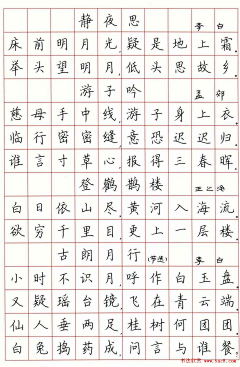 静夜思 李白
床前明月光,疑是地上霜。
举头望明月,低头思故乡。
游子吟 孟郊
慈母手中线,游子身上衣。
临行密密缝,意恐迟迟归。
谁言寸草心,报得三春晖。
登鹳鹊楼 王之涣
白日依山尽,黄河入海流。
欲穷千里目,更上一层楼。
古朗月行(节选) 李白
小时不识月,呼作白玉盘。
又疑瑶台镜,飞在青云端。
仙人垂两足,桂树何团团。
白兔捣药成,问言与谁餐。